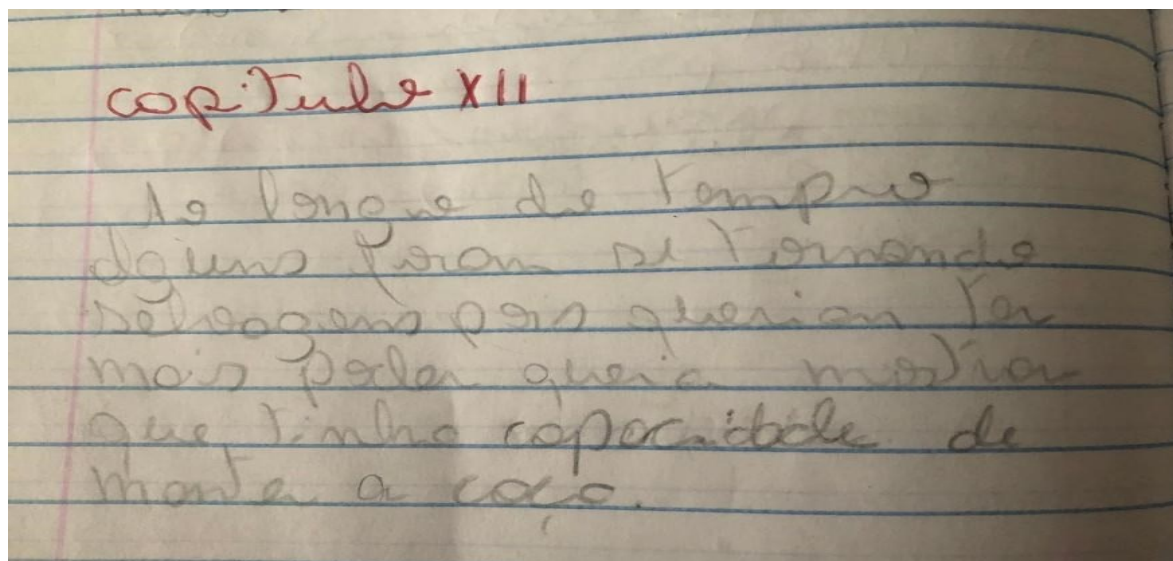 capitulo XII
Ao longo do tempo
alguns foram se tornando
selvagens pois queriam ter
mais poder queria mostrar
que tinha capacidade de
manter a caça.